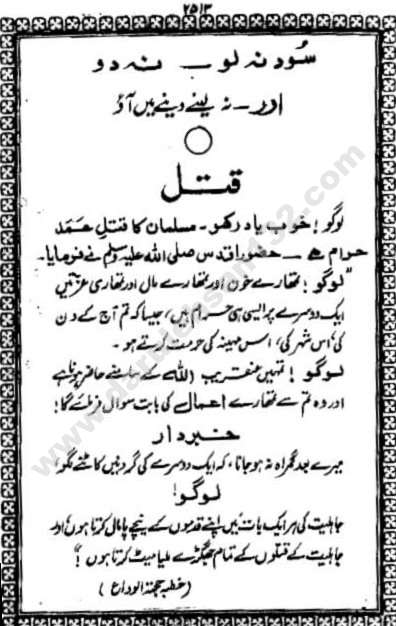 ۲۵۱۳
سُود نہ لو ۔ نہ دو
اور ۔ نہ لینے دینے میں آؤ
قتل
لوگو! خوب یاد رکھو ۔ مسلمان کا قتلِ عمد
حرام ہے ۔ حضورِ اقدس صلی اللہ علیہ وسلم نے فرمایا۔
"لوگو! تمھارے خون اور تمھارے مال اور تمھاری عزتیں
ایک دوسرے پر ایسی ہی حرام ہیں، جیسا کہ تم آج کے دن
کی، اس شہر کی، اس مہینہ کی حرمت کرتے ہو۔
لوگو! تمہیں عنقریب اللہ کے سامنے حاضر ہونا ہے
اور وہ تم سے تمھارے اعمال کی بابت سوال فرمائے گا!
خبردار
میرے بعد گمراہ نہ ہو جانا، کہ ایک دوسرے کی گردنیں کاٹنے لگو!
لوگو!
جاہلیت کی ہر ایک بات میں اپنے قدموں کے نیچے پامال کرتا ہوں اور
جاہلیت کے قتلوں کے تمام جھگڑے ملیا میٹ کرتا ہوں!"
(خطبہ حجۃ الوداع)